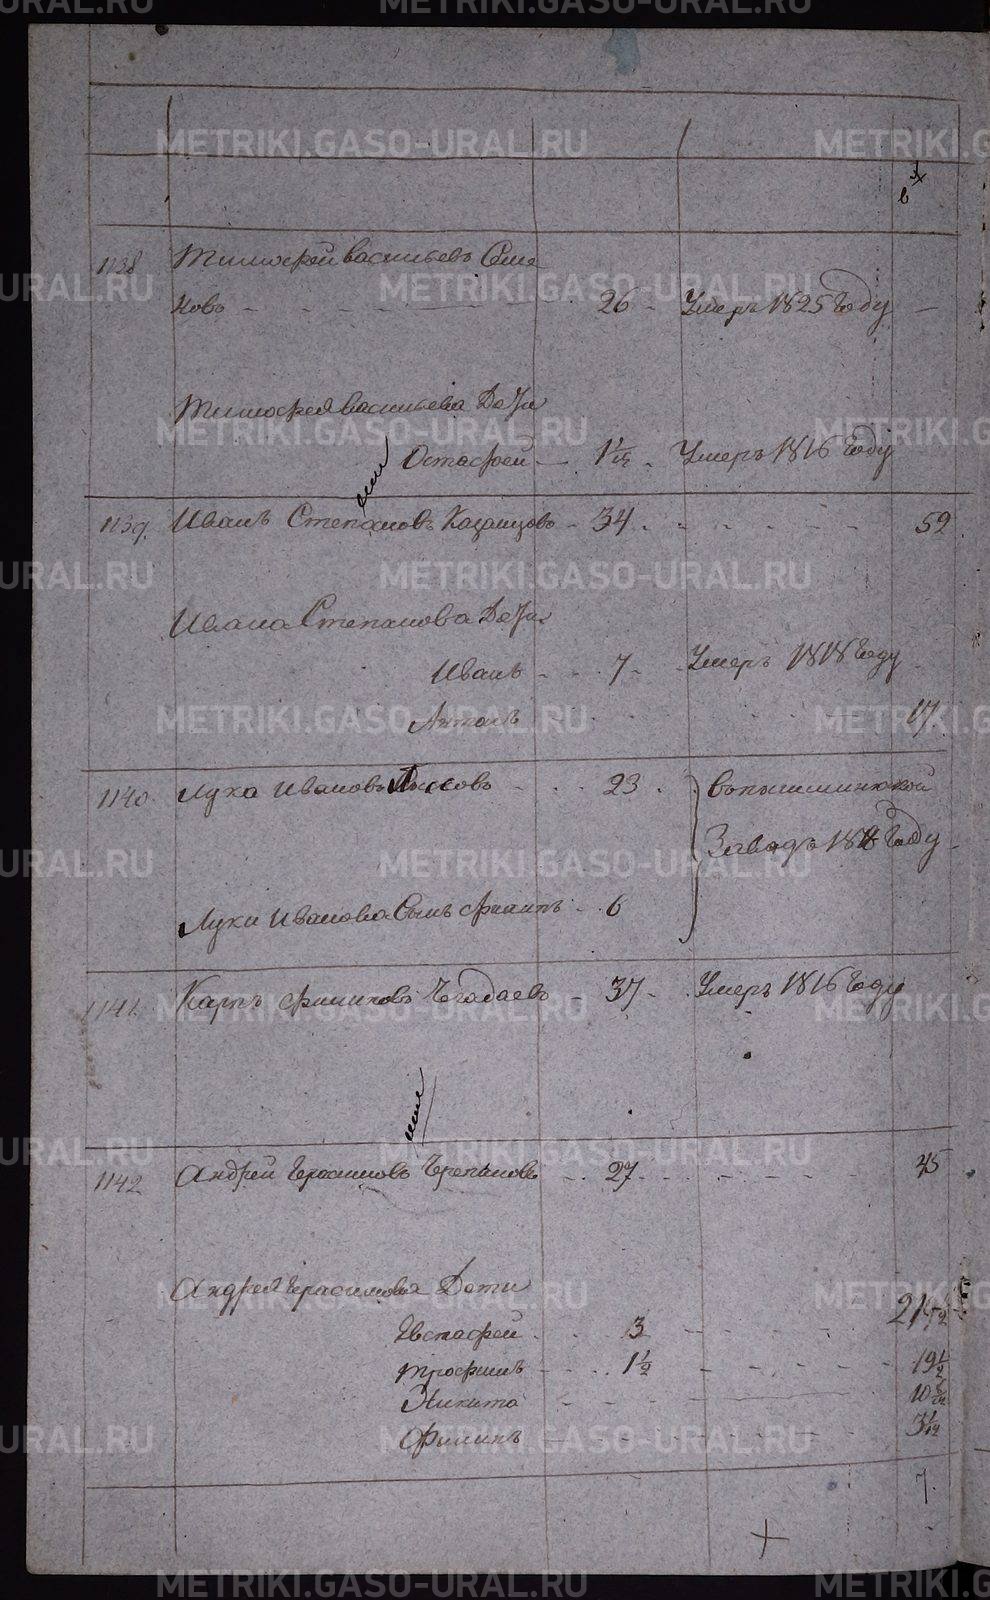 METRIKI.GASO-URAL.RU
1138. Тимофей Васильевъ Сем
ковъ 26 Умеръ 1825 Году
Тимофея Васильева Дети
Остафей 1 1/12 Умеръ 1816 Году
1139. Иванъ Степановъ Казанцовъ 34 59
Ивана Степанова Дети
Иванъ 7 Умеръ 1818 Году
Антонъ 17
1140 Лука Ивановъ 23 Вопышминской
Заводъ Году
Луки Иванова Сынъ Филипъ 6
1141. Карпъ Филиповъ Чегадаевъ 37 Умеръ 1816 Году
1142 Андрей Герасимовъ Черепановъ 27 45
Андрея Герасимова Дети
Евстафей 3 21 1/2
Трофимъ 1 1/2 19 1/2
Никита 10
Филипъ 3 1/12
7.